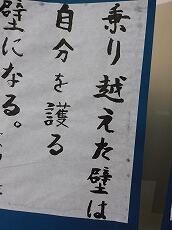 乗り越えた壁は
自分を護る
壁になる。